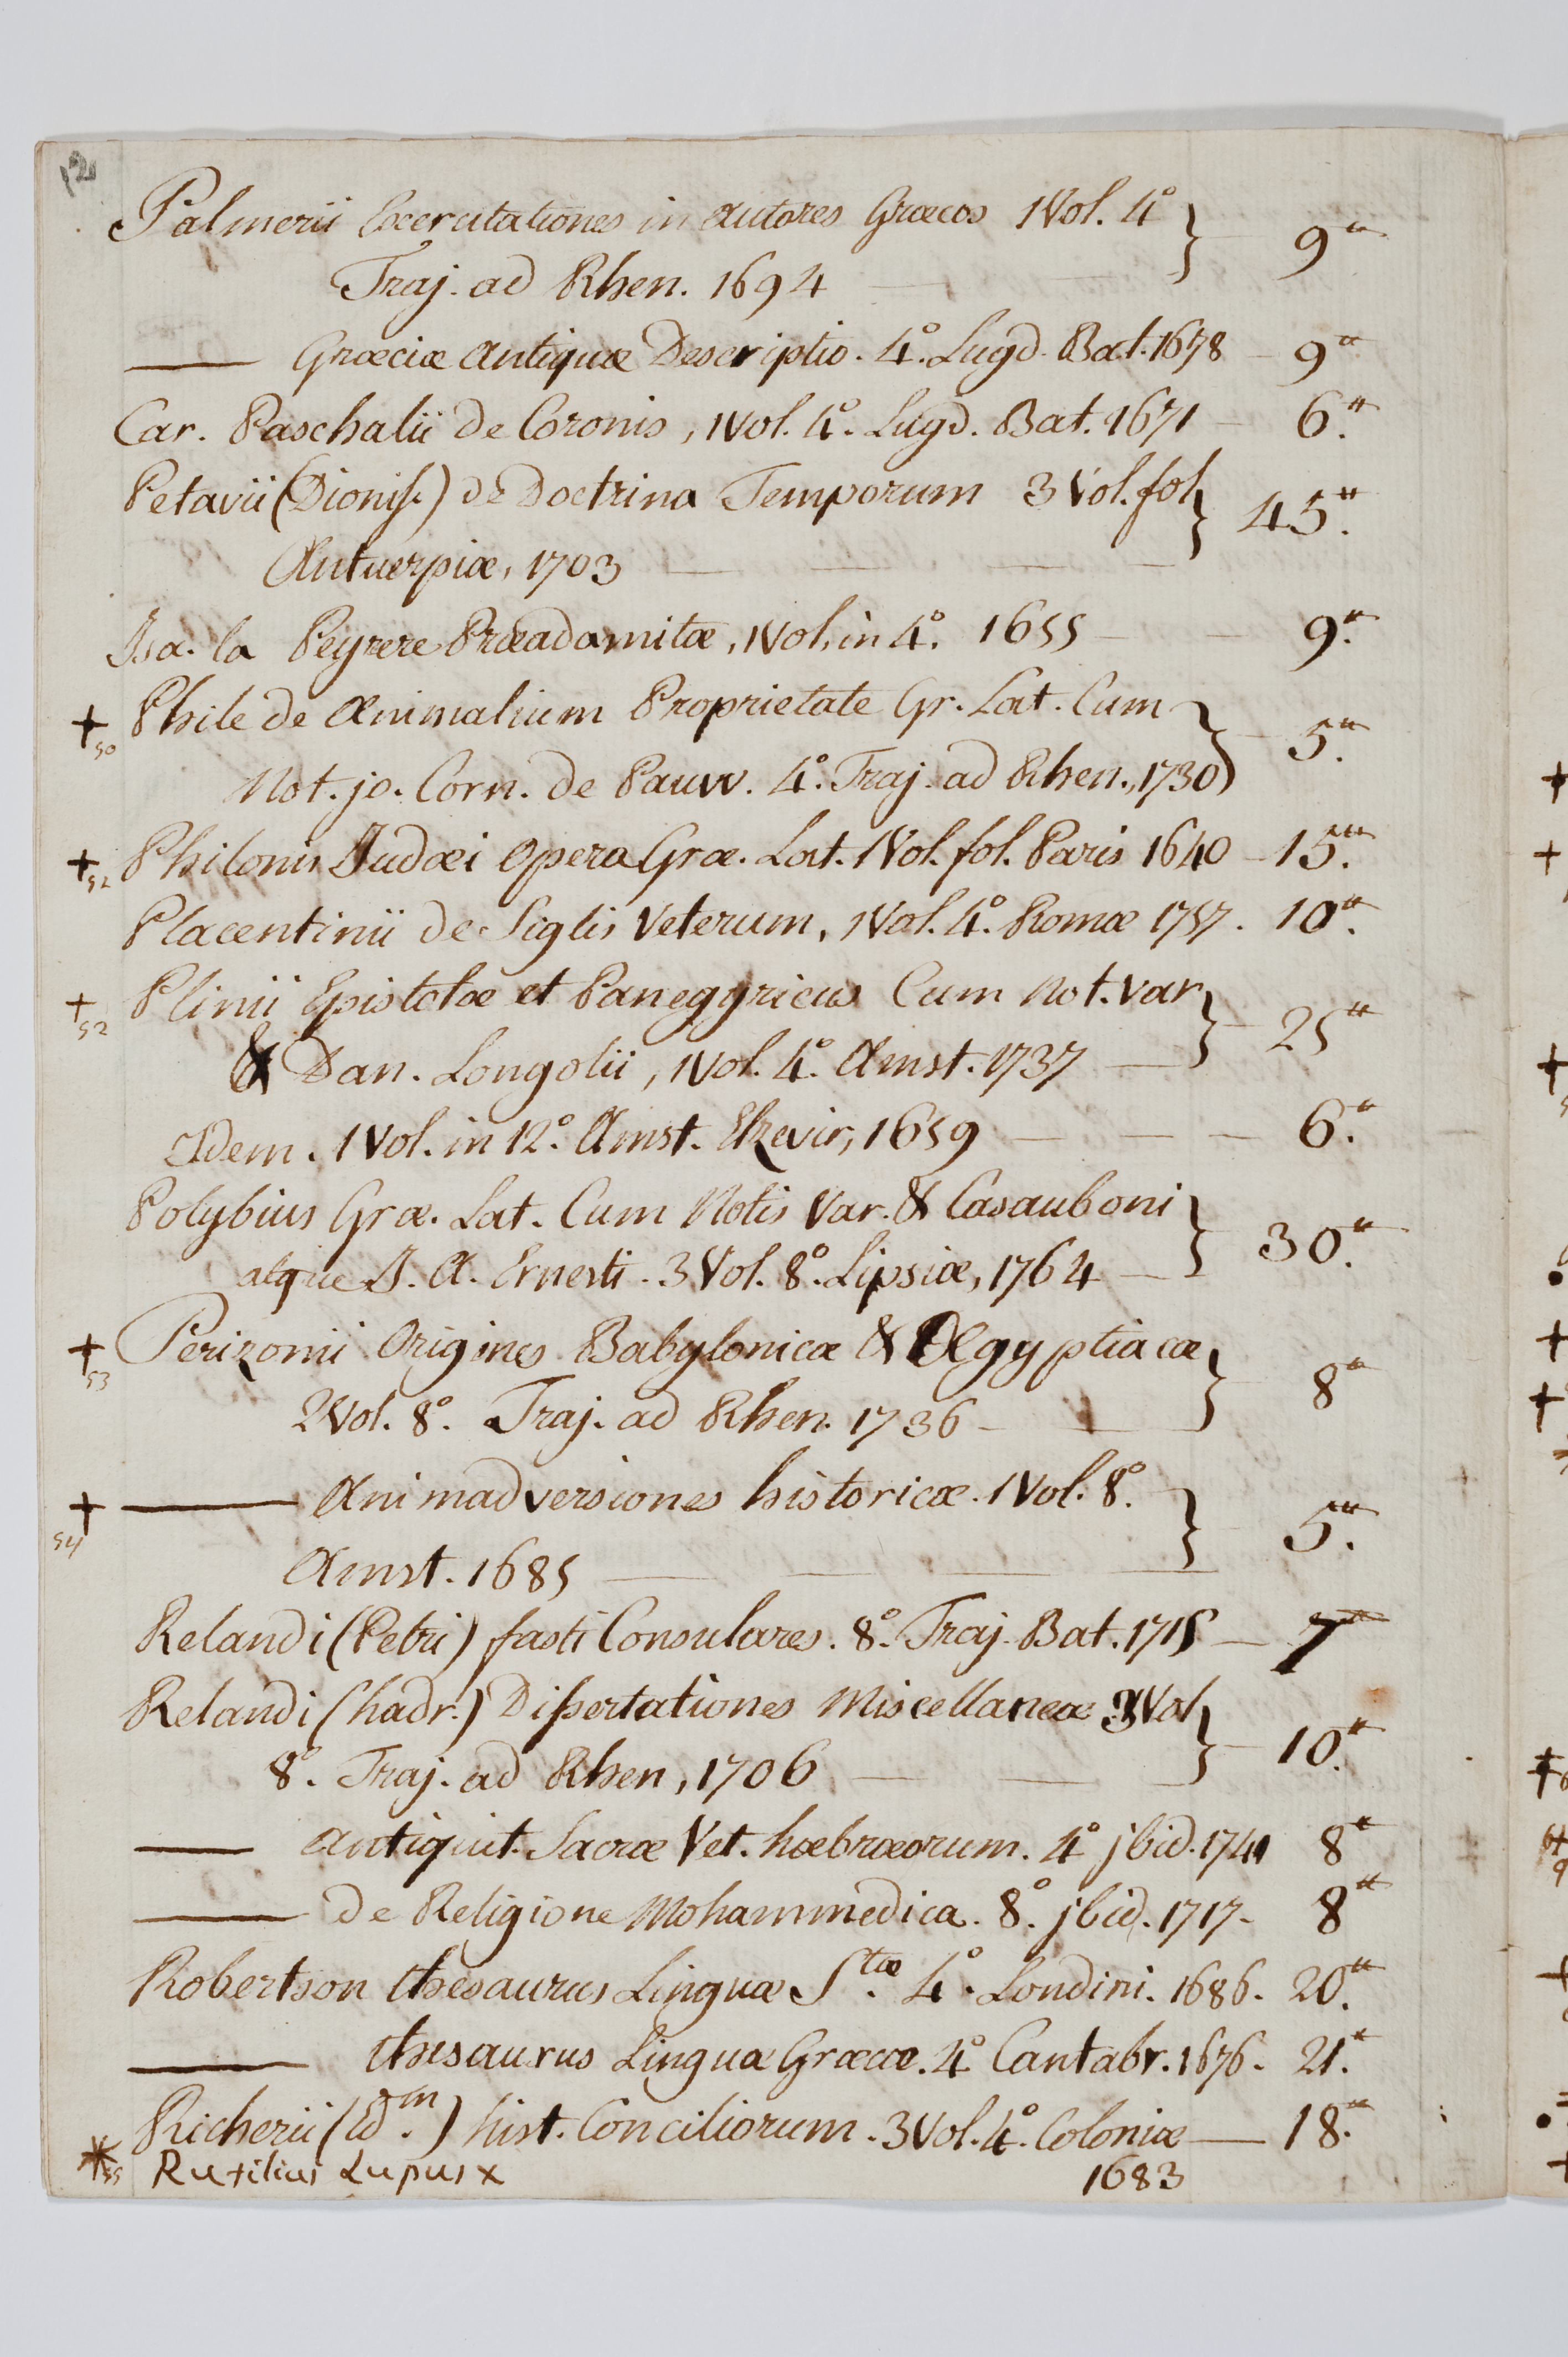 Palmerii Exercitationes in Autores Græcos 1 Vol. 4° } 9"
Traj. ad Rhen. 1694
— Græciæ Antiquæ Descriptio. 4°. Lugd. Bat. 1678 — 9"
Car. Paschalii de Coronis, 1 Vol. 4°. Lugd. Bat. 1671 — 6."
Petavii (Dionis.) de Doctrina Temporum 3 Vol. fol } 45."
Antuerpiæ, 1703
Isa. la Peyrere Præadamitæ, 1 Vol. in 4°. 1655 — 9."
+ 50 Phile de Animalium Proprietate Gr. Lat. Cum } 5."
Not. jo. Corn. de Pauw. 4°. Traj. ad Rhen., 1730
+ 52 Philonis Judæi Opera Græ. Lat. 1 Vol. fol. Paris 1640 — 15."
Placentinii de Siglis Veterum, 1 Vol. 4°. Romæ 1757. 10."
+ 52 Plinii Epistolæ et Panegyricus Cum Not. Var } 25"
& Dan. Longolii, 1 Vol. 4°. Amst. 1737
Idem. 1 Vol. in 12°. Amst. Elzevir, 1659 — 6."
Polybius Græ. Lat. Cum Notis Var. & Casauboni } 30."
atque J. A. Ernesti. 3 Vol. 8°. Lipsiæ, 1764
+ 53 Perizonii Origines Babylonicæ & Ægyptiacæ } 8"
2 Vol. 8°. Traj. ad Rhen. 1736
+ 54 — Animadversiones historicæ. 1 Vol. 8°. } 5."
Amst. 1685
Relandi (Petri) fasti Consulares. 8°. Traj. Bat. 1715 — 7"
Relandi (hadr.) Dissertationes Miscellaneæ 3 Vol } 10."
8°. Traj. ad Rhen, 1706
— Antiquit. Sacræ Vet. hæbræorum. 4° jbid. 1741 8"
— de Religione Mohammedica. 8°. jbid. 1717 — 8"
Robertson thesaurus Linguæ Stæ. 4°. Londini. 1686. 20."
— thesaurus Linguæ Græcæ. 4°. Cantabr. 1676. 21."
Richerii (Edm.) hist. Conciliorum. 3 Vol. 4°. Coloniæ — 18."
1683
* 55 Rutilius Lupus x